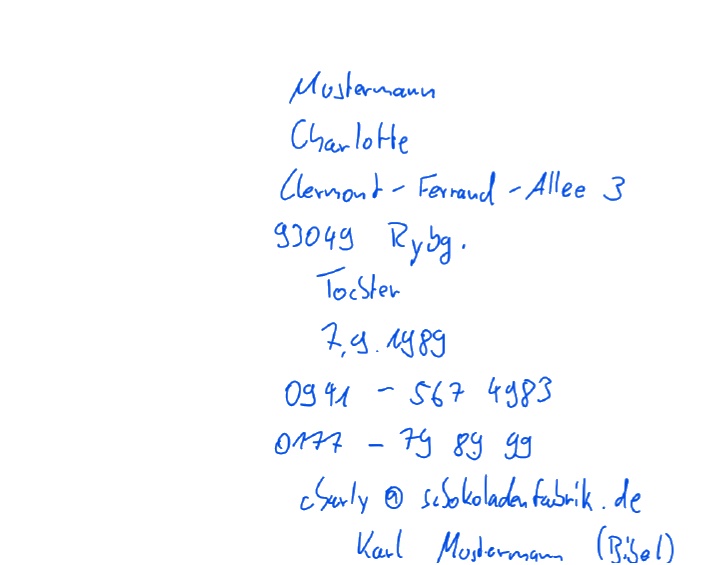 Mustermann
Charlotte
Clermont-Ferrand-Allee 3
93049 Rgbg.
Tochter
7.9.1989
0941 - 567 4983
0177 - 79 89 99
charly@schokoladenfabrik.de
Karl Mustermann